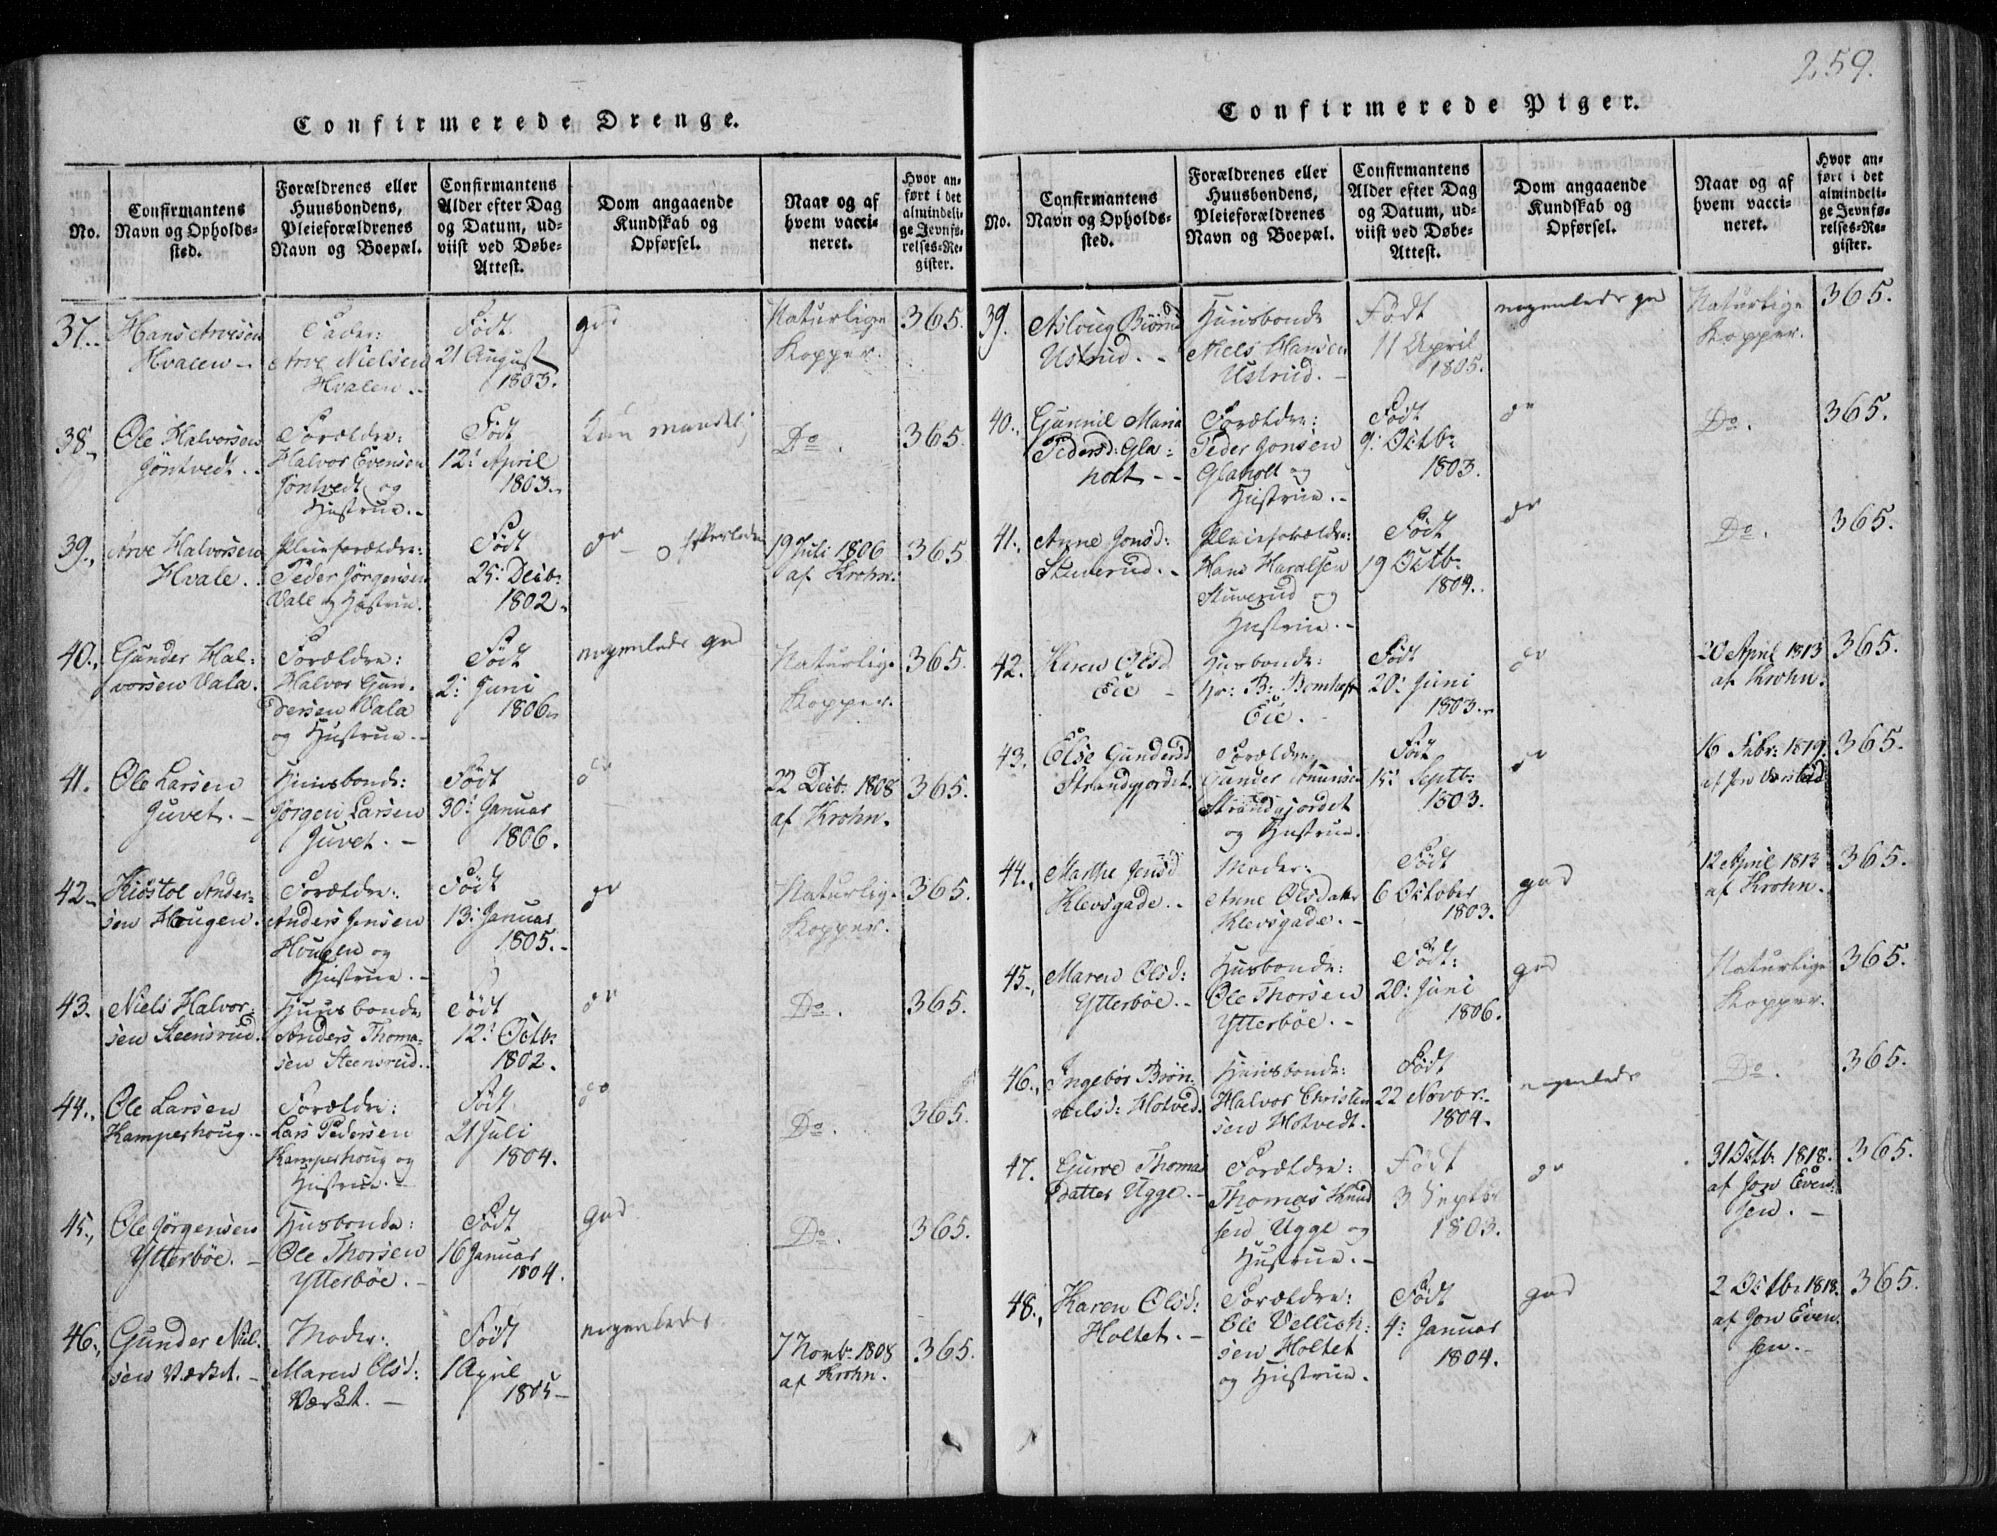 259.
Confirmerede Drenge.
No.
Confirmantens
Navn og Opholds-
sted.
Forældrenes eller
Huusbondens,
Pleieforældrenes
Navn og Boepæl.
Confirmantens
Alder efter Dag
og Datum, ud-
viist ved Døbe-
Attest.
Dom angaaende
Kundskab og
Opførsel.
Naar og af
hvem vacci-
neret.
Hvor an-
ført i det
almindeli-
ge Jevnfø-
relses-Re-
gister.
37.
Hans Arvesen
Hvalen
Fader:
Arve Nielsen
Hvalen.
Født
21 August
1803.
god
Naturlige
Kopper.
365.
38.
Ole Halvorsen
Jøntvedt.
Forældre:
Halvor Evensen
Jøntvedt og
Hustrue.
Født
12: April
1803.
Do.
365.
39.
Arve Halvorsen
Hvale.
Pleieforældre:
Peder Jørgensen
Vale og Hustrue.
Født
25: Decb:
1802.
do
19 Juli 1806
af Krohn.
365
40.
Gunder Hal-
vorsen Vala.
Forældre:
Halvor Gun-
dersen Vala
og Hustrue.
Født
2: Juni
1806.
nogenlede god
Naturlige
Kopper.
365.
41.
Ole Larsen
Juvet.
Huusbonde:
Jørgen Larsen
Juvet.
Født
30: Januar
1806.
do
22 Decb: 1808
af Krohn.
365.
42.
Kiøstol Ander-
sen Hougen.
Forældre:
Anders Jensen
Hougen og
Hustrue.
Født
13: Januar
1805.
do
Naturlige
Kopper.
365.
43.
Niels Halvor-
sen Steensrud.
Huusbonde
Anders Thoma-
sen Steensrud.
Født
12: Octb:
1802.
do
Do.
365.
44.
Ole Larsen
Kamperhoug.
Forældre:
Lars Pedersen
Kamperhoug og
Hustrue.
Født
21 Juli
1804.
do
Do.
365.
45.
Ole Jørgensen
Ytterbøe.
Husbonde:
Ole Thorsen
Ytterbøe.
Født
16 Januar
1804.
god
Do.
365.
46.
Gunder Niel-
sen Værket.
Moder:
Maren Olsd:
Værket.
Født
1 April
1805
nogenlede
7 Novb: 1808
af Krohn.
365.
Confirmerede Piger.
No.
Confirmantens
Navn og Opholds-
sted.
Forældrenes eller
Huusbondens,
Pleieforældrenes
Navn og Boepæl.
Confirmantens
Alder efter Dag
og Datum, ud-
viist ved Døbe-
Attest.
Dom angaaende
Kundskab og
Opførsel.
Naar og af
hvem vacci-
neret.
Hvor an-
ført i det
almindeli-
ge Jevnfø-
relses-Re-
gister.
39.
Asloug Biørnsd
Ustrud.
Huusbonde
Niels Hansen
Ustrud.
Født
11 April
1805.
nogenlede god
Naturlige
Kopper.
365.
40.
Gunnil Maria
Pedersd: Gla-
holt
Forældre:
Peder Jonsen
Glaholt og
Hustrue.
Født
9: Octb:
1803.
do
Do.
365.
41.
Anne Jonsd:
Stuverud.
Pleieforældre:
Hans Haralsen
Stuverud og
Hustrue.
Født
19 Octb:
1804.
do
Do.
365.
42.
Karen Olsd
Eie
Husbonde:
Hr: B: Bomhoft
Eie.
Født
20: Juni
1803.
do
20 April 1813
af Krohn.
365.
43.
Else Gundersd
Strandgjordet.
Forældre
Gunder
Strandgjordet
og Hustrue.
Født
15: Septb:
1803.
do
16 Febr: 1819.
af Jon
365.
44.
Marthe Jensd
Klevsgade.
Moder:
Anne Olsdatter
Klevsgade.
Født
6 October
1803.
god
12 April 1813
af Krohn.
365.
45.
Maren Olsd:
Ytterbøe.
Husbonde:
Ole Thorsen
Ytterbøe.
Født:
20: Juni
1806.
god
Naturlige
Kopper.
365.
46.
Ingebor Brøn-
nilsd: Hotved.
Huusbonde:
Halvor Christen
sen Hotvedt.
Født
22 Novbr:
1804.
nogenlede
Do.
365.
47.
Gurve Thomas
Datter Ugge.
Forældre:
Thomas Knud
sen Ugge og
Hustrue.
Født
3 Septbr
1803.
do
31 Octb: 1818.
af Jon Even-
sen.
365.
48.
Karen Olsd:
Holtet.
Forældre:
Ole Vellich-
sen Holtet
og Hustrue.
Født
4: Januar
1804.
god
2 Octb: 1818.
af Jon Even-
sen.
365.